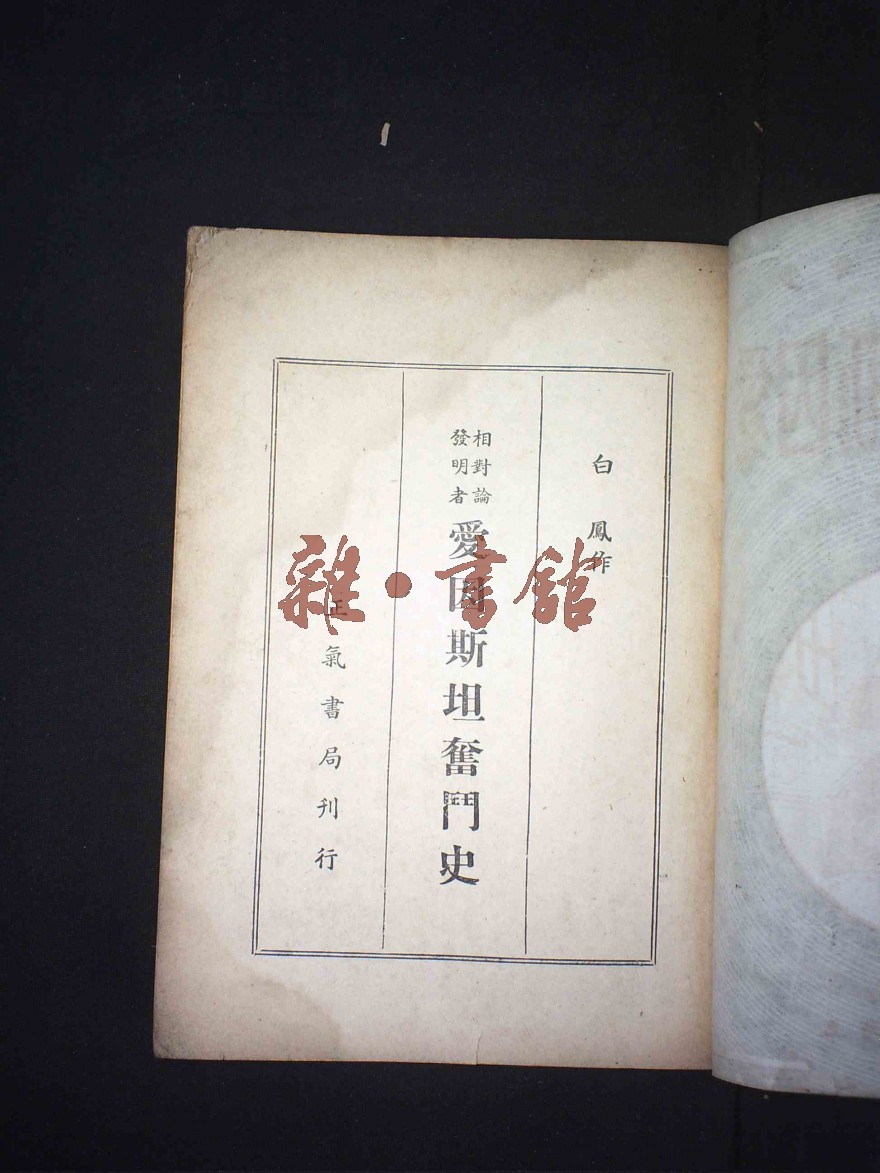 白鳳作
相對論
發明者
愛因斯坦奮鬥史
正氣書局刊行
雜•書館